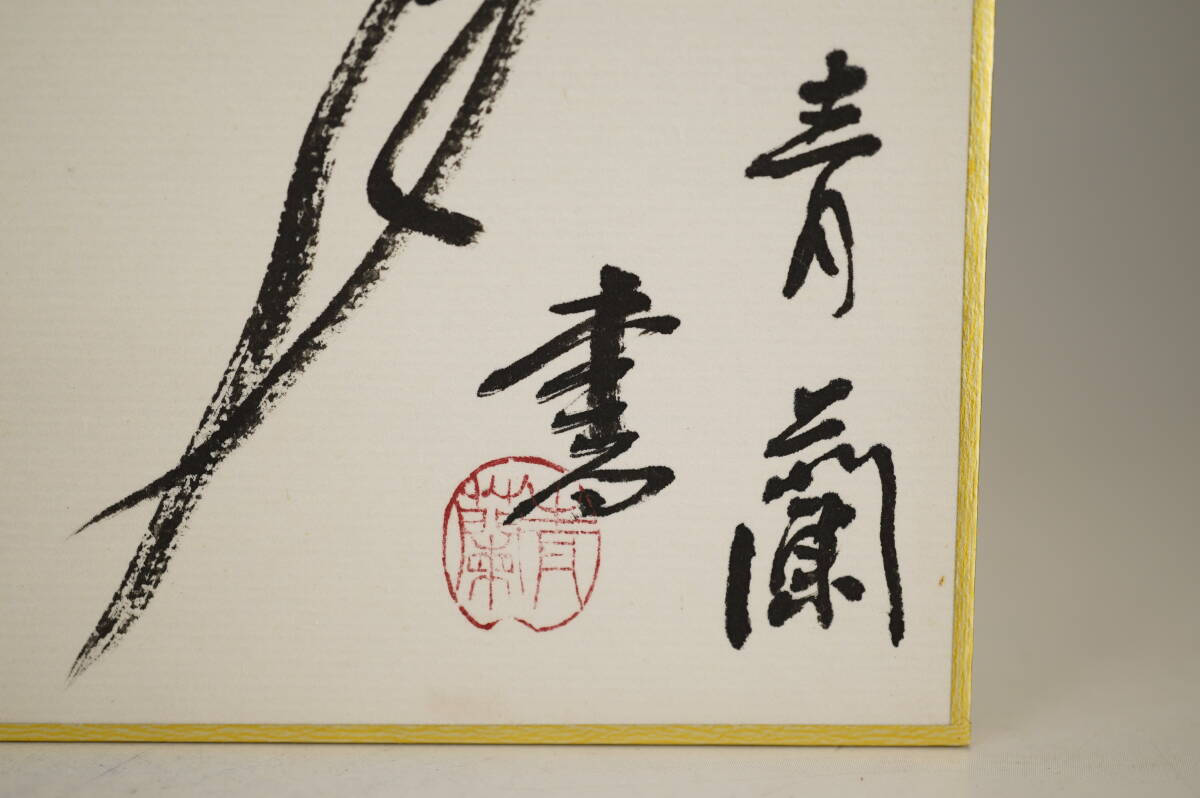 青蘭
書
青蘭